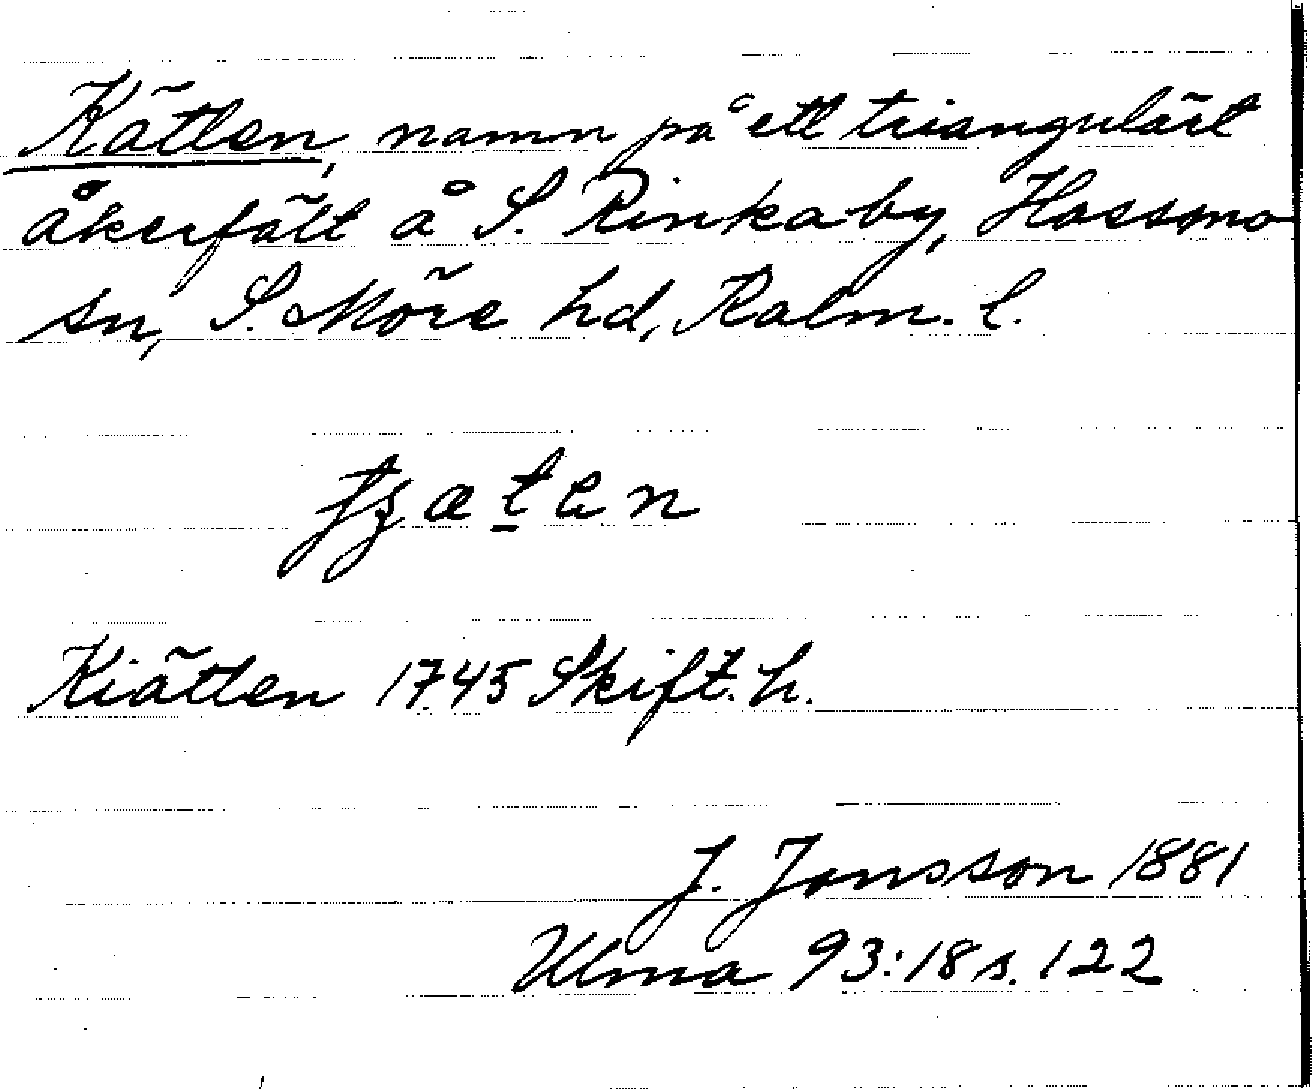 Kätten, namn på ett triangulärt
åkerfält å S. Rinkaby, Hossmo
sn, S. Möre hd, Kalm. l.
Kiätten 1745 Skift. h.
J. Jonsson 1881
Ulma 93:18 s. 122